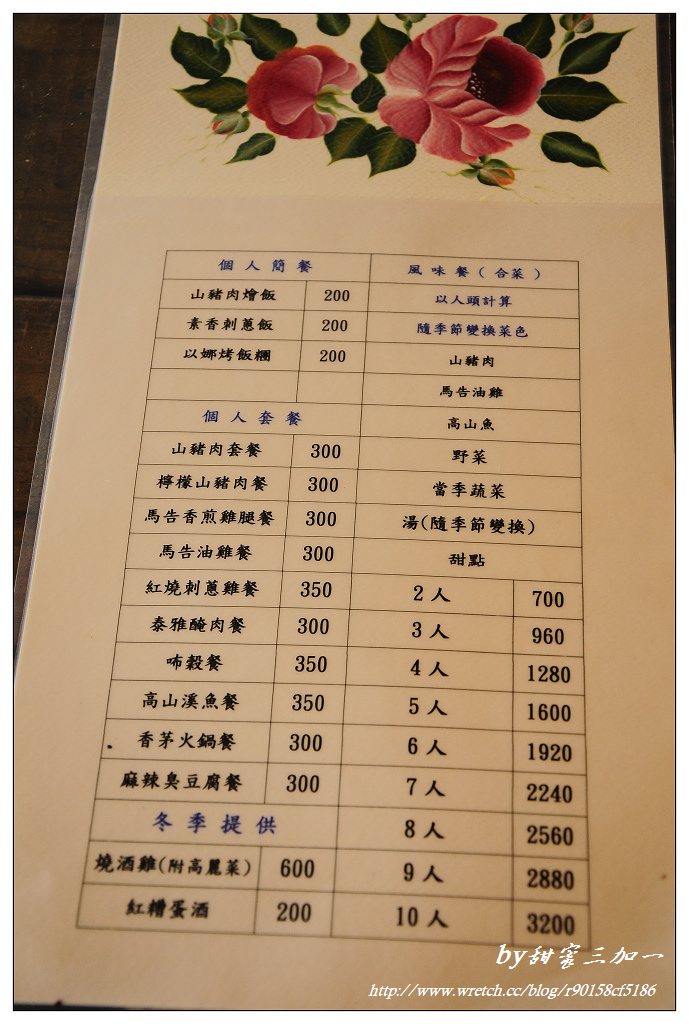 個人簡餐
山豬肉燴飯 200
素香刺蔥飯 200
以娜烤飯糰 200
個人套餐
山豬肉套餐 300
檸檬山豬肉餐 300
馬告香煎雞腿餐 300
馬告油雞餐 300
紅燒刺蔥雞餐 350
泰雅醃肉餐 300
咘穀餐 350
高山溪魚餐 350
香茅火鍋餐 300
麻辣臭豆腐餐 300
冬季提供
燒酒雞(附高麗菜) 600
紅糟蛋酒 200
風味餐(合菜)
以人頭計算
隨季節變換菜色
山豬肉
馬告油雞
高山魚
野菜
當季蔬菜
湯(隨季節變換)
甜點
2人 700
3人 960
4人 1280
5人 1600
6人 1920
7人 2240
8人 2560
9人 2880
10人 3200
by甜蜜三加一
http://www.wretch.cc/blog/r90158cf5186